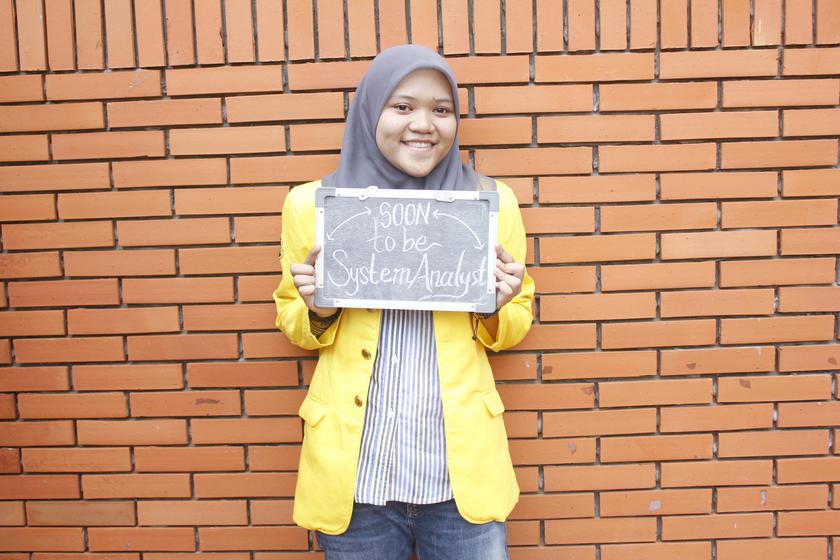 SOON
to be
System Analyst